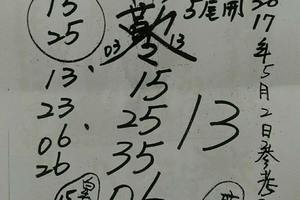 15
25
03
13
5尾開
13
23
06
26
15
25
35
06
13
2017年5月2日參考
15